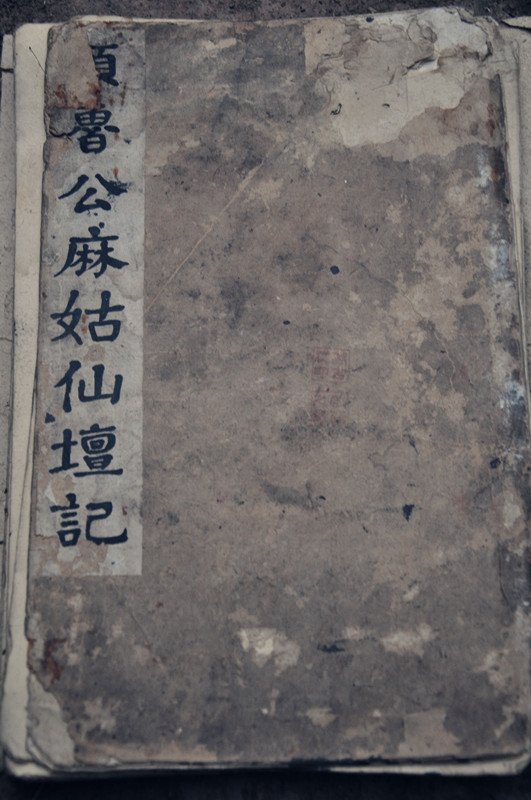 顏魯公麻姑仙壇記